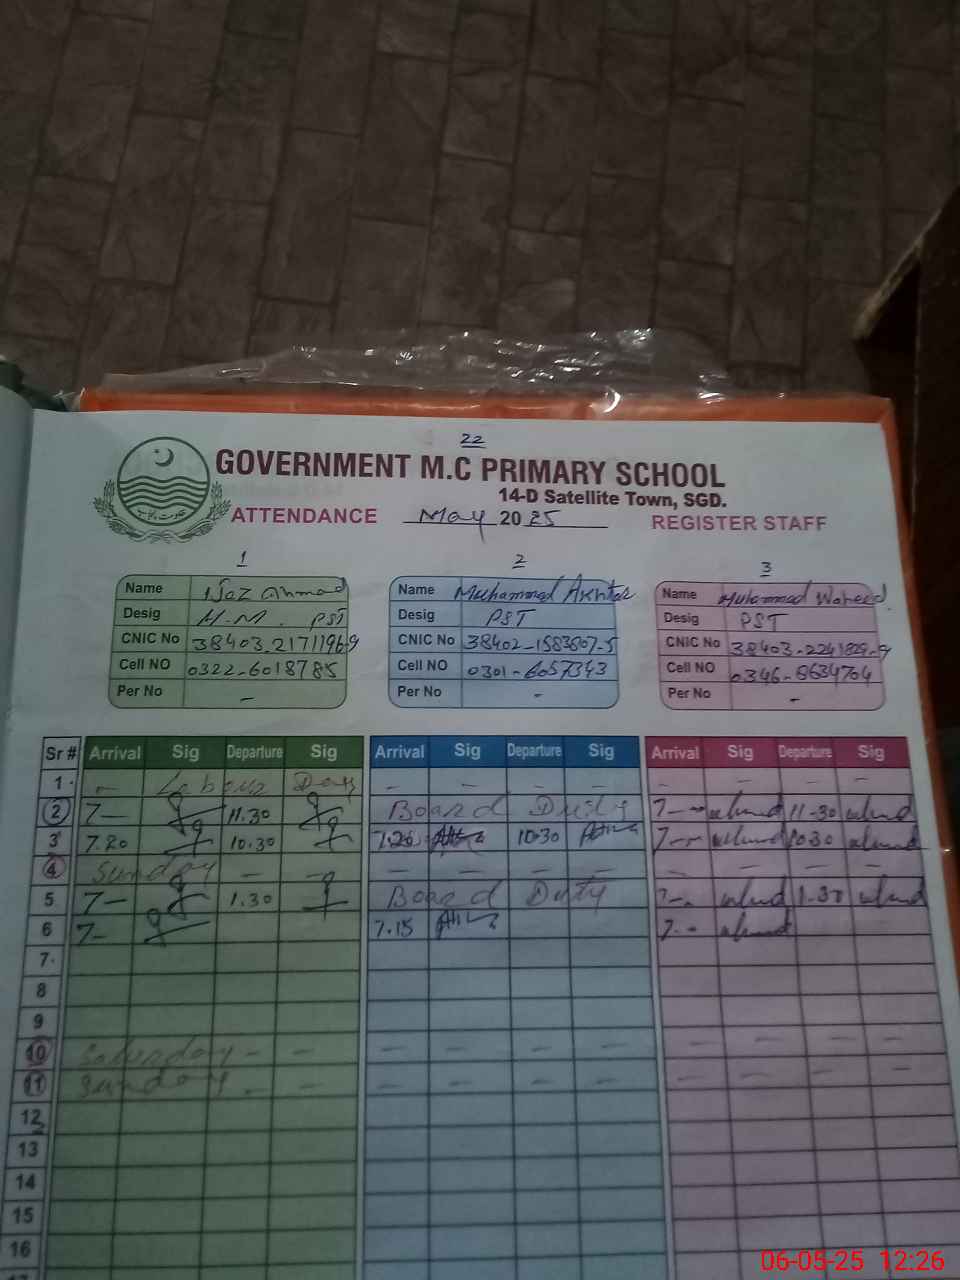 22
GOVERNMENT M.C PRIMARY SCHOOL
14-D Satellite Town, SGD.
ATTENDANCE May 2025 REGISTER STAFF
1 2 3
Name Niaz Ahmad Name Muhammad Akhtar Name Muhammad Waheed
Desig H.M. PST Desig PST Desig PST
CNIC No 38403-2171196-9 CNIC No 38402-1583507-5 CNIC No 38403-2241829-9
Cell NO 0322-6018785 Cell NO 0301-6057343 Cell NO 0346-8634704
Per No - Per No - Per No -
Sr # Arrival Sig Departure Sig Arrival Sig Departure Sig Arrival Sig Departure Sig
1 - Labour Day - - - - - - - -
2 7- 11.30 Board Duty 7- 11-30
3 7.20 10.30 7.20 10.30 7- 10.30
4 Sunday - - - - - - - - - -
5 7- 1.30 Board Duty 7- 1.30
6 7- 7.15 7-
7
8
9
10 Saturday - - - - - - - - - -
11 Sunday - - - - - - - - - -
12
13
14
15
16
06-05-25 12:26